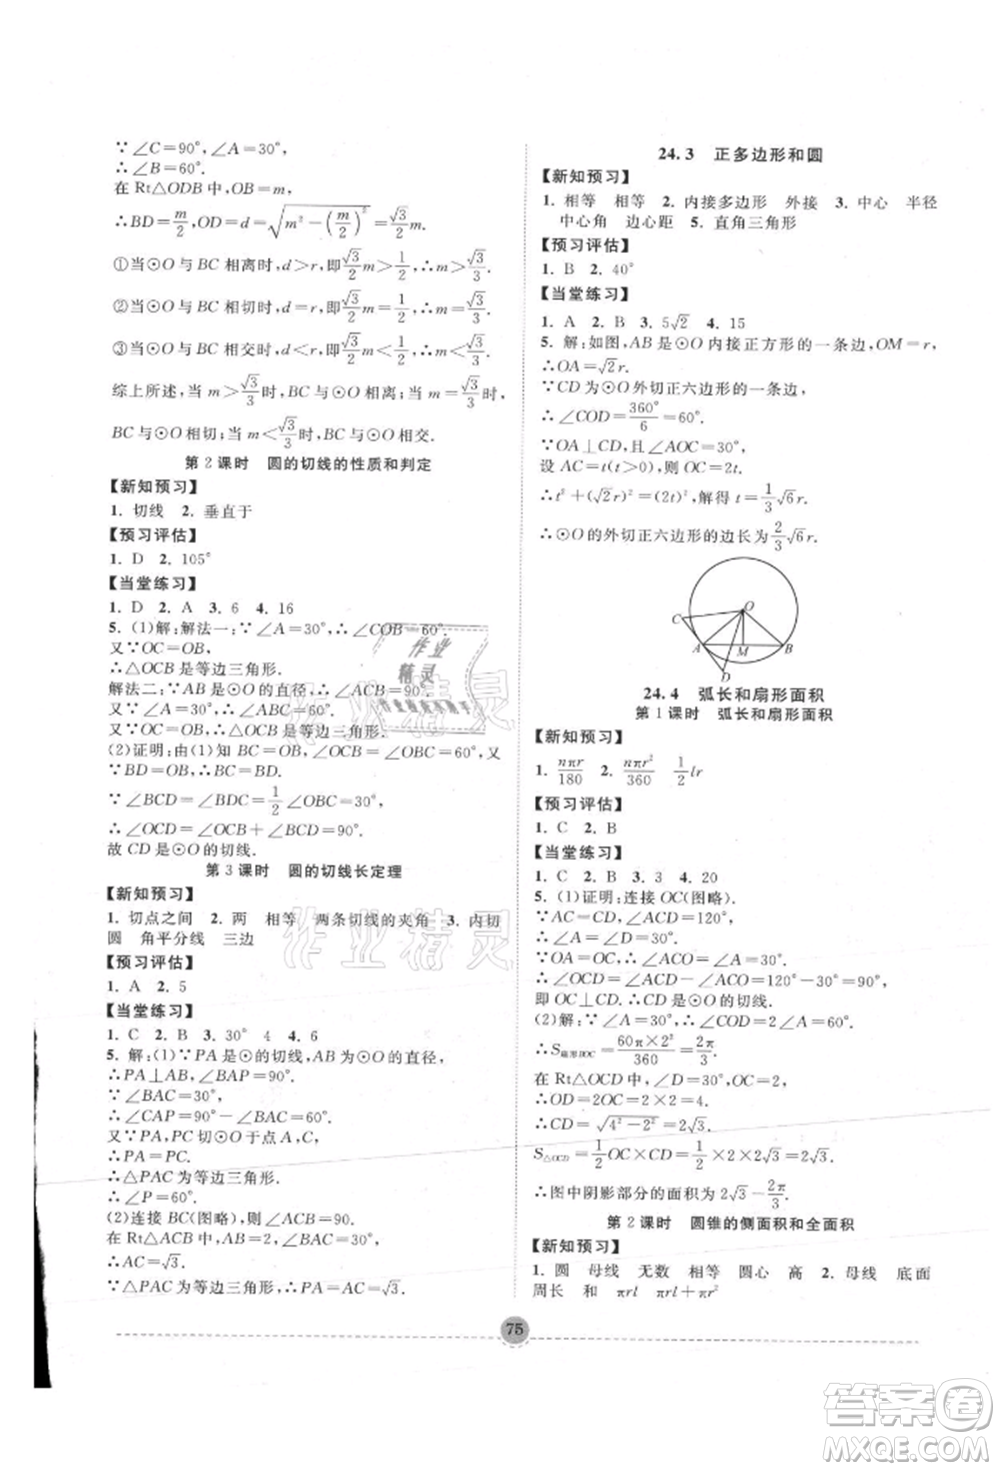 ∵∠C=90°,∠A=30°,
∴∠B=60°.
在 Rt△ODB 中,OB=m,
∴BD=m/2,OD=√(m²−(m/2)²)=√3/2 m.
①当⊙O 与 BC 相离时,d>r,即√3/2 m>1/2,∴m>√3/3.
②当⊙O 与 BC 相切时,d=r,即√3/2 m=1/2,∴m=√3/3.
③当⊙O 与 BC 相交时,d<r,即√3/2 m<1/2,∴m<√3/3.
综上所述,当 m>√3/3时,BC 与⊙O 相离;当 m=√3/3时,
BC 与⊙O 相切;当 m<√3/3时,BC 与⊙O 相交.
第 2 课时 圆的切线的性质和判定
【新知预习】
1. 切线 2. 垂直于
【预习评估】
1. D 2. 105°
【当堂练习】
1. D 2. A 3. 6 4. 16
5. (1)解:解法一:∵∠A=30°,∴∠COB=60°.
又∵OC=OB,
∴△OCB 是等边三角形.
解法二:∵AB 是⊙O 的直径,∴∠ACB=90°.
又∵∠A=30°,∴∠ABC=60°.
又∵OC=OB,∴△OCB 是等边三角形.
(2)证明:由(1)知 BC=OB,∠OCB=∠OBC=60°,又
∵BD=OB,∴BC=BD.
∴∠BCD=∠BDC=1/2∠OBC=30°.
∴∠OCD=∠OCB+∠BCD=90°.
故 CD 是⊙O 的切线.
第 3 课时 圆的切线长定理
【新知预习】
1. 切点之间 2. 两 相等 两条切线的夹角 3. 内切
圆 角平分线 三边
【预习评估】
1. A 2. 5
【当堂练习】
1. C 2. B 3. 30° 4 4. 6
5. 解:(1)∵PA 是⊙O 的切线,AB 为⊙O 的直径,
∴PA⊥AB.∴∠BAP=90°.
∵∠BAC=30°,
∴∠CAP=90°−∠BAC=60°.
又∵PA,PC 切⊙O 于点 A,C,
∴PA=PC.
∴△PAC 为等边三角形.
∴∠P=60°.
(2)连接 BC(图略),则∠ACB=90°.
在 Rt△ACB 中,AB=2,∠BAC=30°,
∴AC=√3.
∵△PAC 为等边三角形,∴PA=AC=√3.
24.3 正多边形和圆
【新知预习】
1. 相等 相等 2. 内接多边形 外接 3. 中心 半径
中心角 边心距 5. 直角三角形
【预习评估】
1. B 2. 40°
【当堂练习】
1. A 2. B 3. 5√2 4. 15
5. 解:如图,AB 是⊙O 内接正方形的一条边,OM=r,
∴OA=√2r.
∵CD 为⊙O 外切正六边形的一条边,
∴∠COD=360°/6=60°.
∵OA⊥CD,∴∠AOC=30°.
设 AC=t(t>0),则 OC=2t.
∴t²+(√2r)²=(2t)²,解得 t=1/3√6r.
∴⊙O 的外切正六边形的边长为2/3√6r.
O
C
A
M
B
D
24.4 弧长和扇形面积
第 1 课时 弧长和扇形面积
【新知预习】
1. nπr/180 2. nπr²/360 1/2 lr
【预习评估】
1. C 2. B
【当堂练习】
1. C 2. B 3. 3 4. 20
5. (1)证明:连接 OC(图略).
∵AC=CD,∠ACD=120°,
∴∠A=∠D=30°.
∵OA=OC,∴∠ACO=∠A=30°.
∴∠OCD=∠ACD−∠ACO=120°−30°=90°,
即 OC⊥CD.∴CD 是⊙O 的切线.
(2)解:∵∠A=30°,∴∠COD=2∠A=60°.
∴S扇形BOC=60π×2²/360=2π/3.
在 Rt△OCD 中,∠D=30°,
∴OD=2OC=2×2=4.
∴CD=√(4²−2²)=2√3.
S△OCD=1/2 OC×CD=1/2×2×2√3=2√3.
∴图中阴影部分的面积为2√3−2π/3.
第 2 课时 圆锥的侧面积和全面积
【新知预习】
1. 圆 母线 无数 相等 圆心 高 2. 母线 底面
周长 和 πrl πrl+πr²
75
作业精灵
作业精灵
作业
精灵
答案卷
MXQE.COM